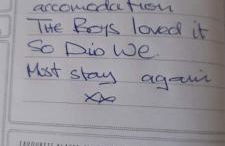 accomodation
The Boys loved it
So Did We.
Most stay again
xx